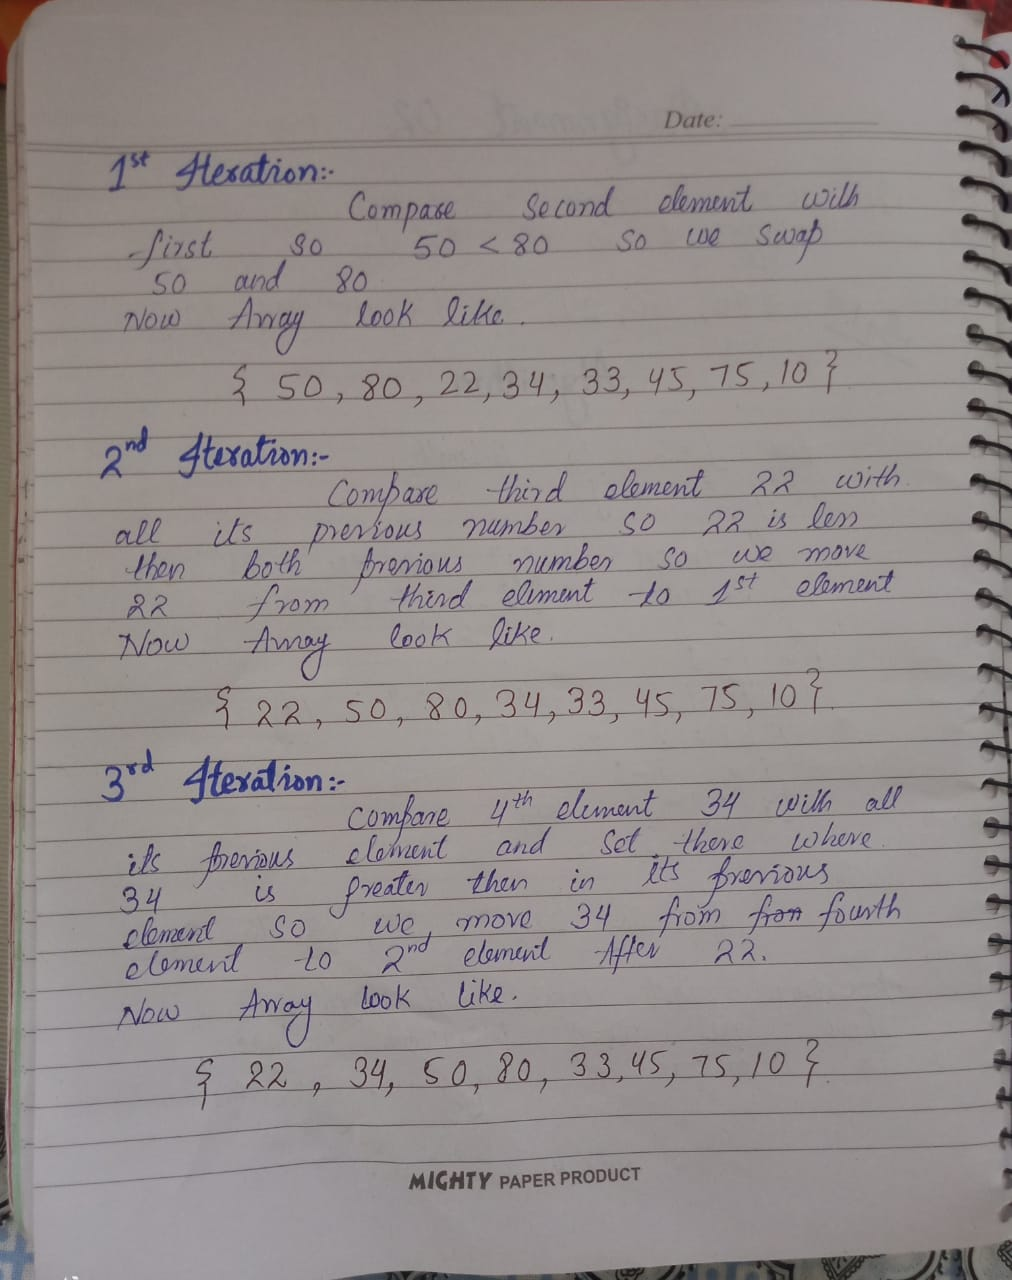 Date:
1st Iteration:-
Compare Second element with
first 80 50 < 80 so we swap
50 and 80
Now Array look like.
{ 50, 80, 22, 34, 33, 45, 75, 10 }
2nd Iteration:-
Compare third element 22 with
all its previous number so 22 is less
then both previous number so we move
22 from third element to 1st element
Now Array look like.
{ 22, 50, 80, 34, 33, 45, 75, 10 }
3rd Iteration:-
Compare 4th element 34 with all
its previous element and Set there where
34 is greater then in its previous
element so we move 34 from from fourth
element to 2nd element After 22.
Now Array look like.
{ 22, 34, 50, 80, 33, 45, 75, 10 }
MIGHTY PAPER PRODUCT